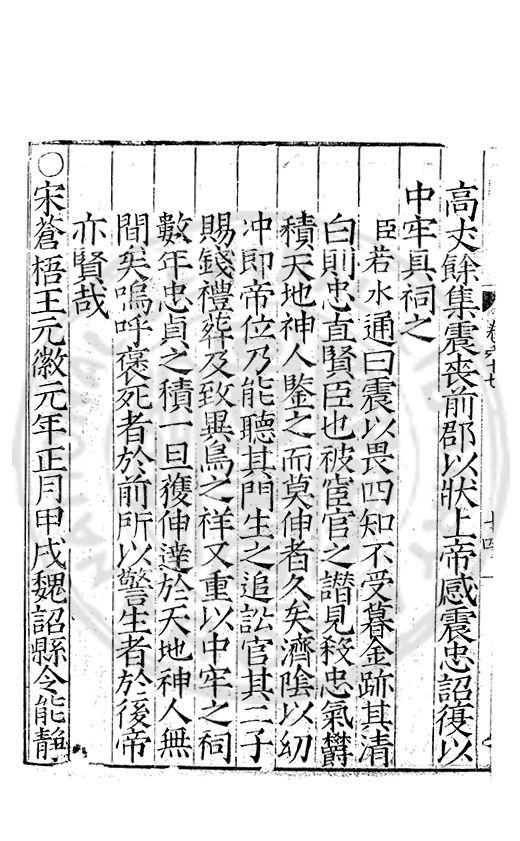 高丈餘集震喪前郡以狀上帝感震忠詔復以
中牢具祠之
臣若水通曰震以畏四知不受暮金跡其清
白則忠直賢臣也被宦官之譖見殺忠氣欝
積天地神人鑒之而莫伸者久矣濟陰以幼
冲即帝位乃能聽其門生之追訟官其二子
賜錢禮葬及致異鳥之祥又重以中牢之祠
數年忠貞之積一旦獲伸達於天地神人無
間矣嗚呼褒死者於前所以警生者於後帝
亦賢哉
○宋蒼梧王元徽元年正月甲戌魏詔縣令能靜